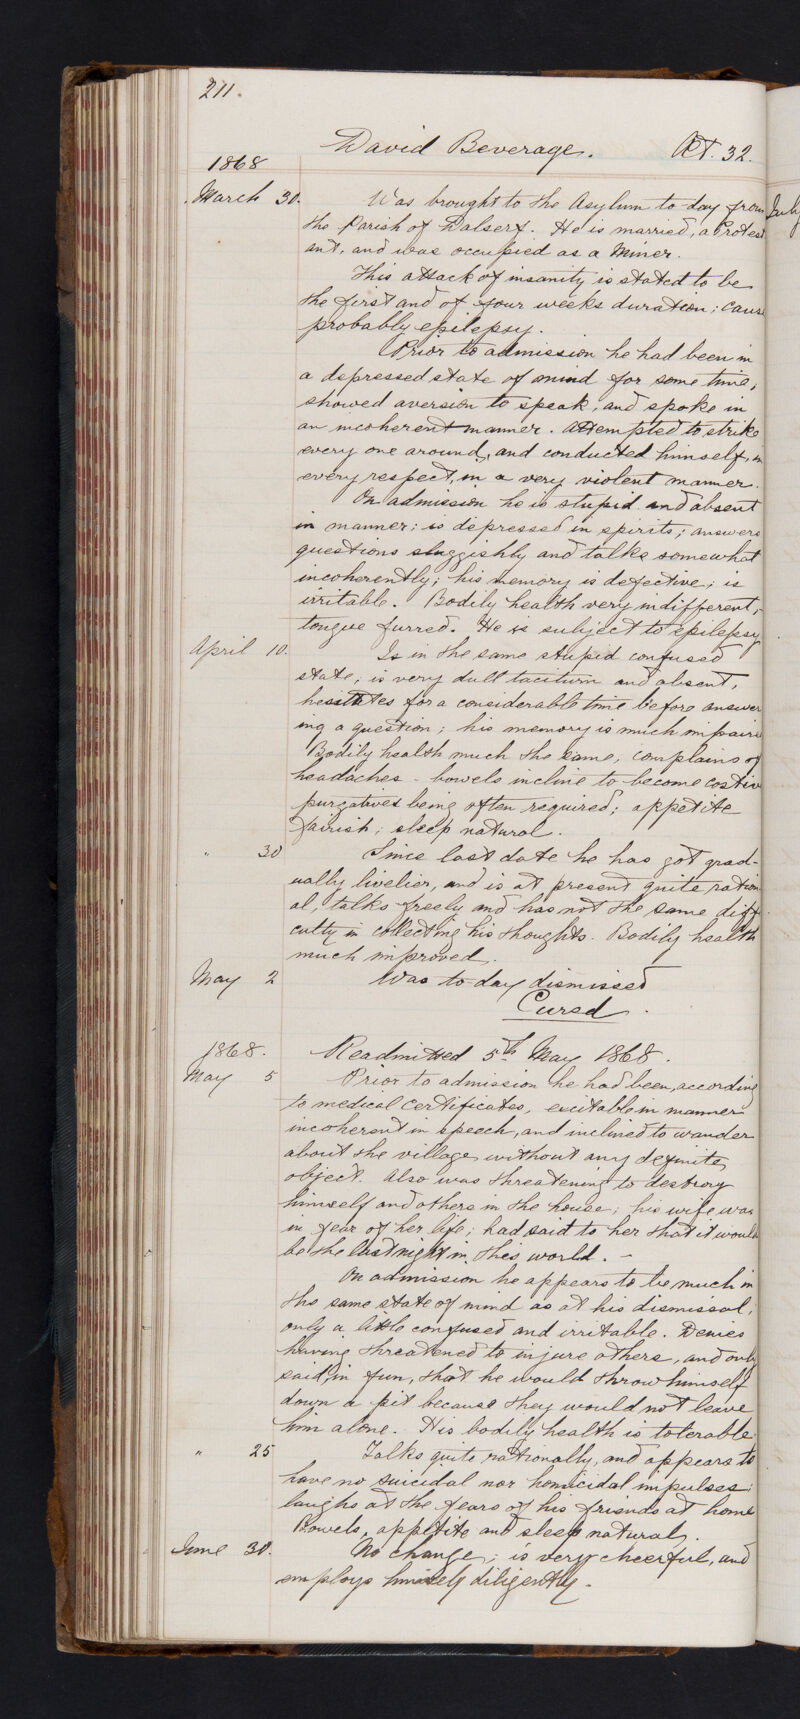 211.
David Beverage. Æt. 32.
1868
March 30. Was brought to the Asylum to day from
the Parish of Dalserf. He is married, a Protest
ant, and was occupied as a Miner.
This attack of insanity is stated to be
the first and of four weeks duration; cause
probably epilepsy.
Prior to admission he had been in
a depressed state of mind for some time,
showed aversion to speak, and spoke in
an incoherent manner. Attempted to strike
every one around, and conducted himself, in
every respect, in a very violent manner.
On admission he is stupid and absent
in manner; is depressed in spirits; answers
questions sluggishly and talks somewhat
incoherently; his memory is defective; is
irritable. Bodily health very indifferent;
tongue furred. He is subject to epilepsy
April 10. Is in the same stupid confused
state; is very dull taciturn and absent,
hesitates for a considerable time before answer
ing a question; his memory is much impaired
Bodily health much the same, complains of
headaches - bowels incline to become costive
purgatives being often required; appetite
fairish; sleep natural.
" 30 Since last date he has got grad-
ually livelier, and is at present quite ration
al, talks freely and has not the same diffi
culty in collecting his thoughts. Bodily health
much improved.
May 2 Was to day dismissed
Cured.
1868. Readmitted 5th May 1868.
May 5 Prior to admission he had been, according
to medical certificates, excitable in manner
incoherent in speech, and inclined to wander
about the village without any definite
object. Also was threatening to destroy
himself and others in the house; his wife was
in fear of her life; had said to her that it would
be the last night in this world. -
On admission he appears to be much in
the same state of mind as at his dismissal,
only a little confused and irritable. Denies
having threatened to injure others, and only
said, in fun, that he would throw himself
down a pit because they would not leave
him alone. His bodily health is tolerable.
" 25 Talks quite rationally, and appears to
have no suicidal nor homicidal impulses;
laughs at the fears of his friends at home
Bowels, appetite and sleep natural.
June 30. No change; is very cheerful, and
employs himself diligently.
July